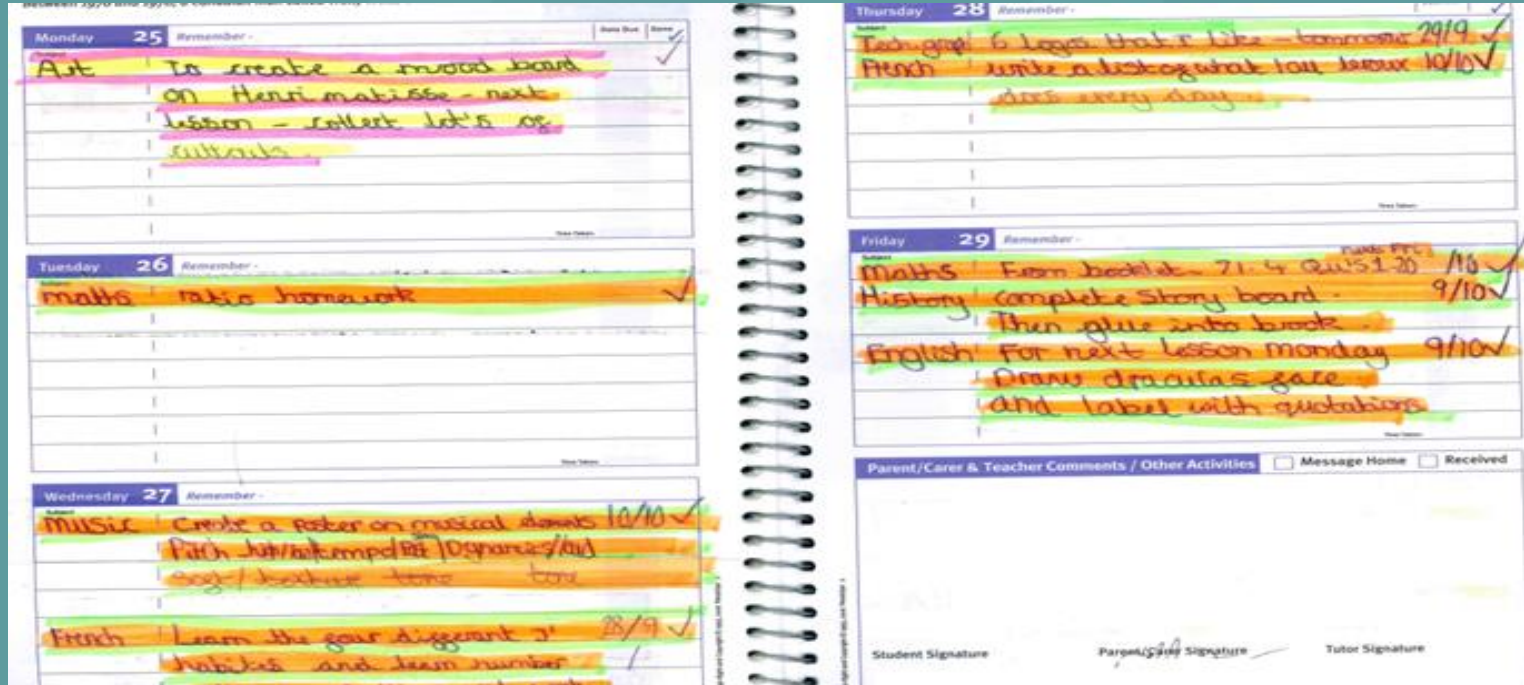 Monday 25 Remember -
Date Due Done
Subject
Art To create a mood board
on Henri matisse - next
lesson - collect lot's of
cuttouts.
Time Taken:
Tuesday 26 Remember -
maths ratio homework
Time Taken:
Wednesday 27 Remember -
Subject
Music Create a poster on musical 10/10
Pitch
soft/ texture tone tone
French Learn the four different J' 28/9
habites and learn number
Thursday 28 Remember -
Subject
Tech graph 6 logos that I like - tommorow 29/9
French write a list of what 10/10
does every day.
Time Taken:
Friday 29 Remember -
Subject
maths From booklet - 71.4 Qu's 1-20 /10
History complete Story board. 9/10
Then glue into book.
English For next lesson monday 9/10
Draw draculas face
and label with quotations
Time Taken:
Parent/Carer & Teacher Comments / Other Activities Message Home Received
Student Signature Parent/Carer Signature Tutor Signature